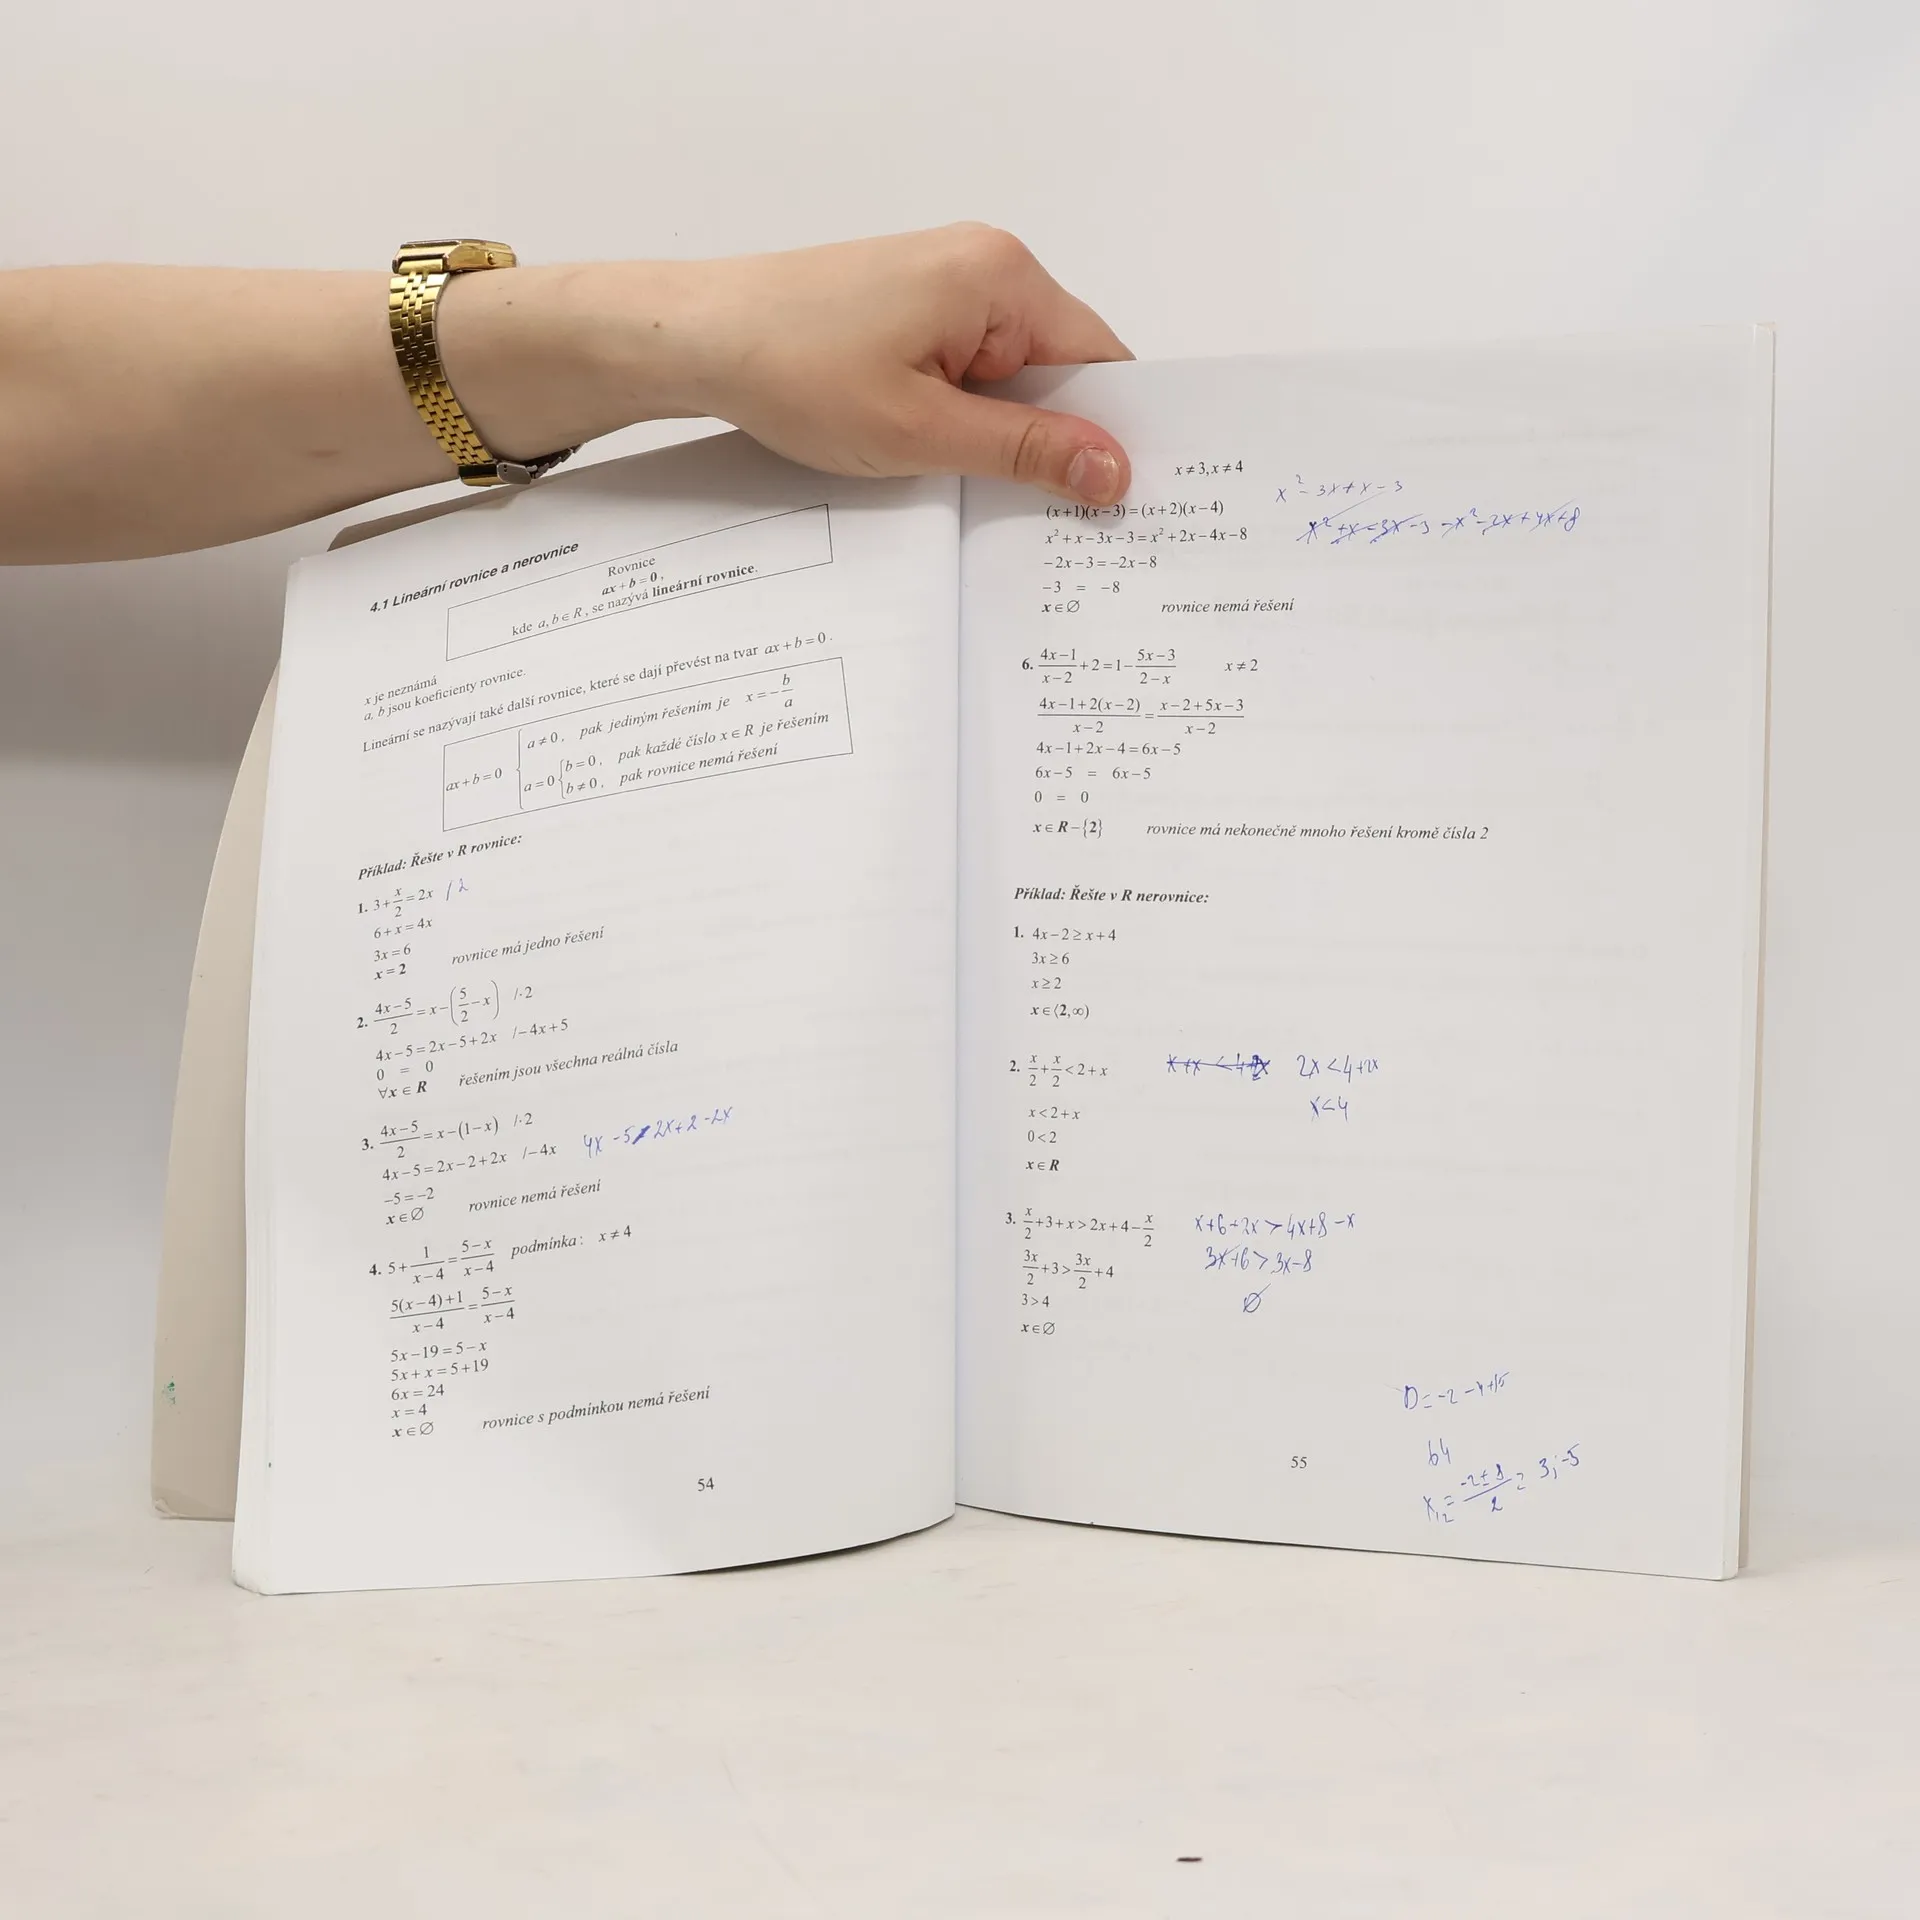 4.1 Lineární rovnice a nerovnice
Rovnice
ax + b = 0,
kde a, b ∈ R, se nazývá lineární rovnice.
x je neznámá
a, b jsou koeficienty rovnice.
Lineární se nazývají také další rovnice, které se dají převést na tvar ax + b = 0.
a ≠ 0, pak jediným řešením je x = −b/a
ax + b = 0
a = 0 { b = 0, pak každé číslo x ∈ R je řešením
b ≠ 0, pak rovnice nemá řešení
Příklad: Řešte v R rovnice:
1. 3 + x/2 = 2x /2
6 + x = 4x
3x = 6
x = 2 rovnice má jedno řešení
2. (4x − 5)/2 = x − (5/2 − x) /·2
4x − 5 = 2x − 5 + 2x /− 4x + 5
0 = 0
∀x ∈ R řešením jsou všechna reálná čísla
3. (4x − 5)/2 = x − (1 − x) /·2
4x − 5 = 2x − 2 + 2x /− 4x
−5 = −2
x ∈ ∅ rovnice nemá řešení
4. 5 + 1/(x − 4) = (5 − x)/(x − 4) podmínka: x ≠ 4
(5(x − 4) + 1)/(x − 4) = (5 − x)/(x − 4)
5x − 19 = 5 − x
5x + x = 5 + 19
6x = 24
x = 4
x ∈ ∅ rovnice s podmínkou nemá řešení
54
x ≠ 3, x ≠ 4
x² − 3x + x − 3
(x + 1)(x − 3) = (x + 2)(x − 4)
x² + x − 3x − 3 = x² + 2x − 4x − 8
−2x − 3 = −2x − 8
−3 = −8
x ∈ ∅ rovnice nemá řešení
6. (4x − 1)/(x − 2) + 2 = 1 − (5x − 3)/(2 − x) x ≠ 2
(4x − 1 + 2(x − 2))/(x − 2) = (x − 2 + 5x − 3)/(x − 2)
4x − 1 + 2x − 4 = 6x − 5
6x − 5 = 6x − 5
0 = 0
x ∈ R − {2} rovnice má nekonečně mnoho řešení kromě čísla 2
Příklad: Řešte v R nerovnice:
1. 4x − 2 ≥ x + 4
3x ≥ 6
x ≥ 2
x ∈ ⟨2, ∞)
2. x/2 + x/2 < 2 + x 2x < 4 + 2x
x < 2 + x x < 4
0 < 2
x ∈ R
3. x/2 + 3 + x > 2x + 4 − x/2 x + 6 + 2x > 4x + 8 − x
3x/2 + 3 > 3x/2 + 4 3x + 6 > 3x − 8
3 > 4 ∅
x ∈ ∅
64
55